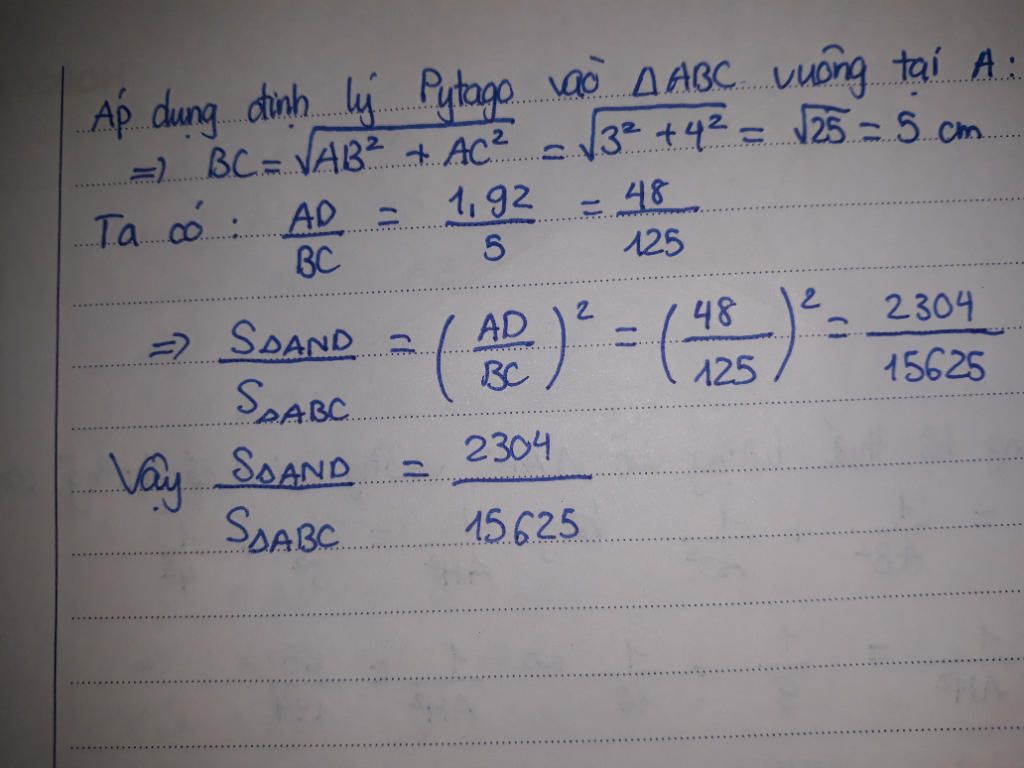 Áp dụng định lý Pytago vào ΔABC vuông tại A:
=> BC = √AB² + AC² = √3² + 4² = √25 = 5 cm
Ta có: AD/BC = 1,92/5 = 48/125
=> SΔAND/SΔABC = (AD/BC)² = (48/125)² = 2304/15625
Vậy SΔAND/SΔABC = 2304/15625